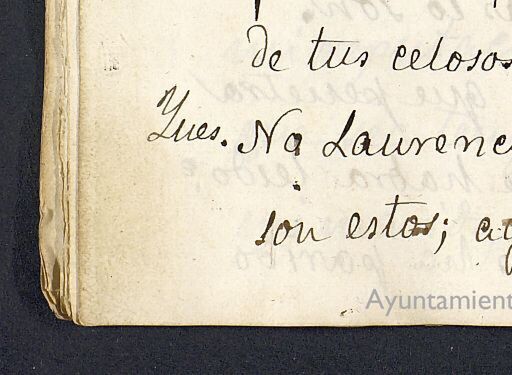 de tus celosos
Ynes. No Laurenc
son estos; a
Ayuntamient